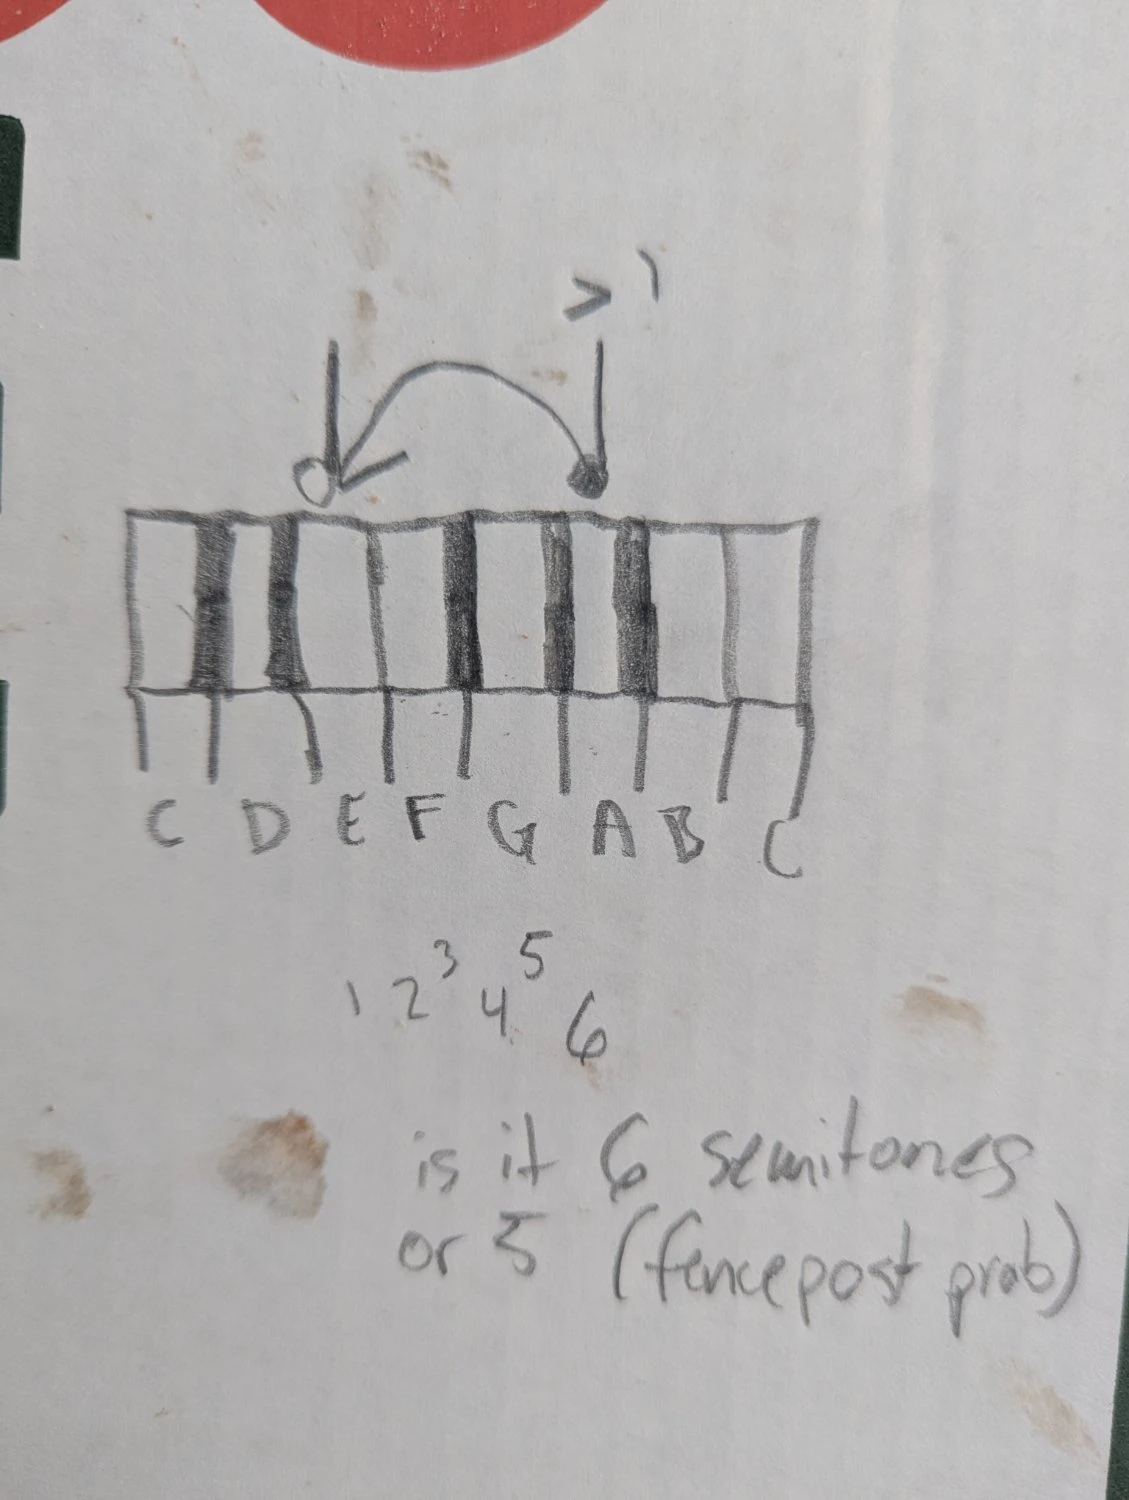 > )
C D E F G A B C
1 2 3 4 5 6
is it 6 semitones
or 5 (fencepost prob)